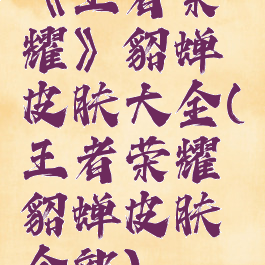 《王者荣
耀》貂蝉
皮肤大全(
王者荣耀
貂蝉皮肤
全部)